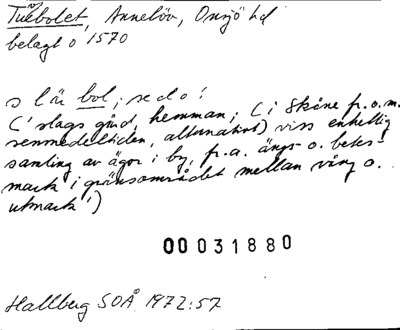 Tuvbolet, Annelöv, Onsjö hd
belagt o 1570
s lär bol; se do!
('slags gård, hemman; (i Skåne fr.o.m.
senmedeltiden, alternativt) viss enhetlig
samling av ägor i by, fr.a. ängs- o. betes-
mark i gränsområdet mellan vång o.
utmark')
00031880
Hallberg SOÅ 1972:57